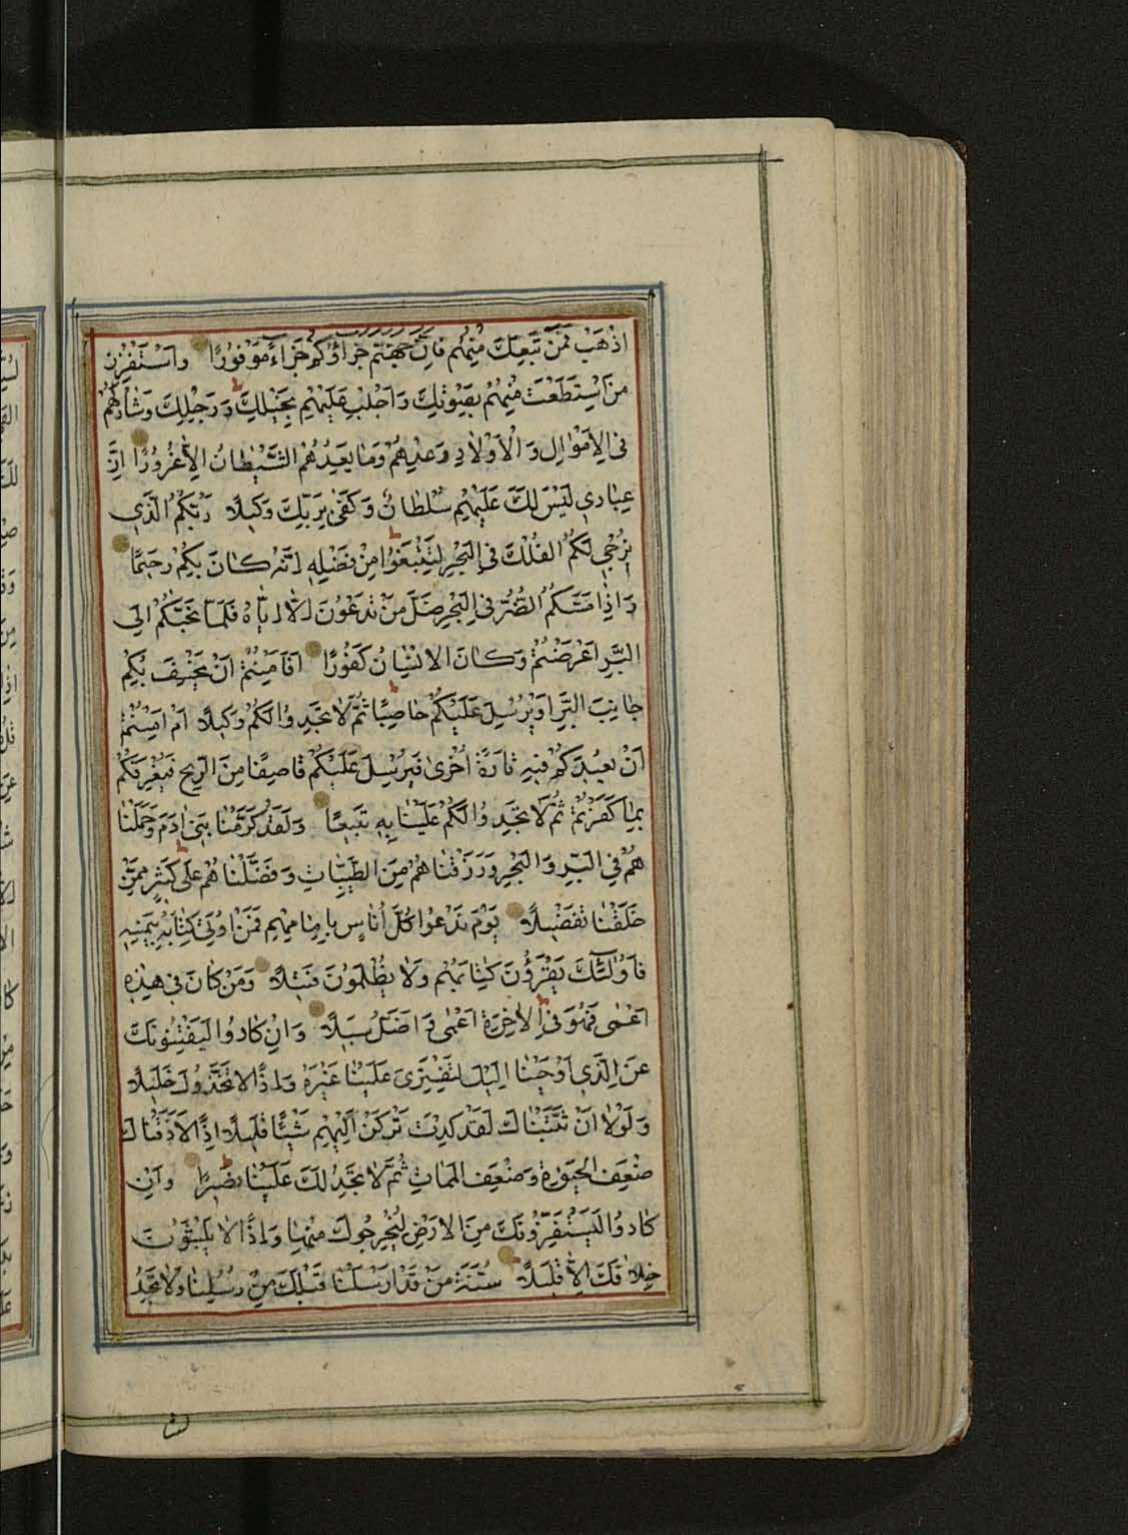 اذْهَبْ فَمَنْ تَبِعَكَ مِنْهُمْ فَاِنَّ جَهَنَّمَ جَزَاؤُكُمْ جَزَاءً مَوْفُورًا وَاسْتَفْزِزْ
مَنِ اسْتَطَعْتَ مِنْهُمْ بِصَوْتِكَ وَاَجْلِبْ عَلَيْهِمْ بِخَيْلِكَ وَرَجِلِكَ وَشَارِكْهُمْ
فِى الْاَمْوَالِ وَالْاَوْلَادِ وَعِدْهُمْ وَمَا يَعِدُهُمُ الشَّيْطَانُ اِلَّا غُرُورًا اِنَّ
عِبَادِى لَيْسَ لَكَ عَلَيْهِمْ سُلْطَانٌ وَكَفٰى بِرَبِّكَ وَكِيلًا رَبُّكُمُ الَّذِى
يُزْجِى لَكُمُ الْفُلْكَ فِى الْبَحْرِ لِتَبْتَغُوا مِنْ فَضْلِهِ اِنَّهُ كَانَ بِكُمْ رَحِيمًا
وَاِذَا مَسَّكُمُ الضُّرُّ فِى الْبَحْرِ ضَلَّ مَنْ تَدْعُونَ اِلَّا اِيَّاهُ فَلَمَّا نَجّٰيكُمْ اِلَى
الْبَرِّ اَعْرَضْتُمْ وَكَانَ الْاِنْسَانُ كَفُورًا اَفَاَمِنْتُمْ اَنْ يَخْسِفَ بِكُمْ
جَانِبَ الْبَرِّ اَوْ يُرْسِلَ عَلَيْكُمْ حَاصِبًا ثُمَّ لَا تَجِدُوا لَكُمْ وَكِيلًا اَمْ اَمِنْتُمْ
اَنْ يُعِيدَكُمْ فِيهِ تَارَةً اُخْرٰى فَيُرْسِلَ عَلَيْكُمْ قَاصِفًا مِنَ الرِّيحِ فَيُغْرِقَكُمْ
بِمَا كَفَرْتُمْ ثُمَّ لَا تَجِدُوا لَكُمْ عَلَيْنَا بِهِ تَبِيعًا وَلَقَدْ كَرَّمْنَا بَنِى اٰدَمَ وَحَمَلْنَا
هُمْ فِى الْبَرِّ وَالْبَحْرِ وَرَزَقْنَاهُمْ مِنَ الطَّيِّبَاتِ وَفَضَّلْنَاهُمْ عَلٰى كَثِيرٍ مِمَّنْ
خَلَقْنَا تَفْضِيلًا يَوْمَ نَدْعُوا كُلَّ اُنَاسٍ بِاِمَامِهِمْ فَمَنْ اُوتِىَ كِتَابَهُ بِيَمِينِهِ
فَاُولٰئِكَ يَقْرَؤُنَ كِتَابَهُمْ وَلَا يُظْلَمُونَ فَتِيلًا وَمَنْ كَانَ فِى هٰذِهِ
اَعْمٰى فَهُوَ فِى الْاٰخِرَةِ اَعْمٰى وَاَضَلُّ سَبِيلًا وَاِنْ كَادُوا لَيَفْتِنُونَكَ
عَنِ الَّذِى اَوْحَيْنَا اِلَيْكَ لِتَفْتَرِىَ عَلَيْنَا غَيْرَهُ وَاِذًا لَاتَّخَذُوكَ خَلِيلًا
وَلَوْلَا اَنْ ثَبَّتْنَاكَ لَقَدْ كِدْتَ تَرْكَنُ اِلَيْهِمْ شَيْئًا قَلِيلًا اِذًا لَاَذَقْنَاكَ
ضِعْفَ الْحَيٰوةِ وَضِعْفَ الْمَمَاتِ ثُمَّ لَا تَجِدُ لَكَ عَلَيْنَا نَصِيرًا وَاِنْ
كَادُوا لَيَسْتَفِزُّونَكَ مِنَ الْاَرْضِ لِيُخْرِجُوكَ مِنْهَا وَاِذًا لَا يَلْبَثُونَ
خِلَافَكَ اِلَّا قَلِيلًا سُنَّةَ مَنْ قَدْ اَرْسَلْنَا قَبْلَكَ مِنْ رُسُلِنَا وَلَا تَجِدُ